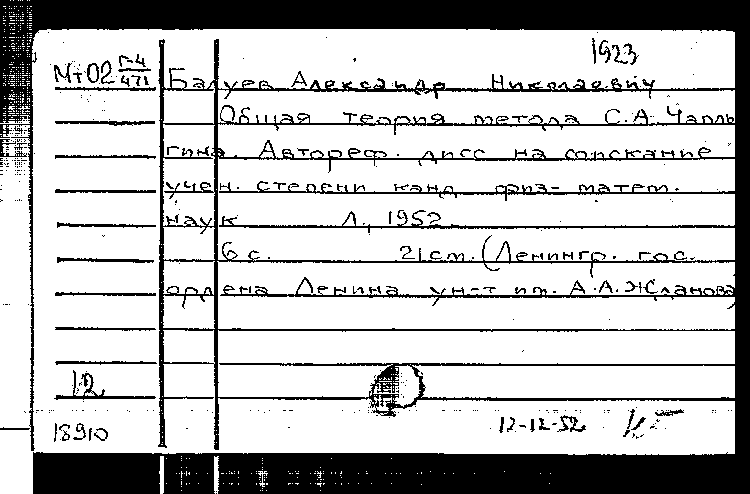 1923
Мт02 Г-4/471 Балуев Александр Николаевич
Общая теория метода С.А. Чаплы
гина. Автореф. дисс на соискание
учен. степени канд физ-матем.
наук Л., 1952
6 с. 21 см. (Ленингр. гос.
ордена Ленина ун-т им. А.А. Жданова)
12
12-12-52
18910